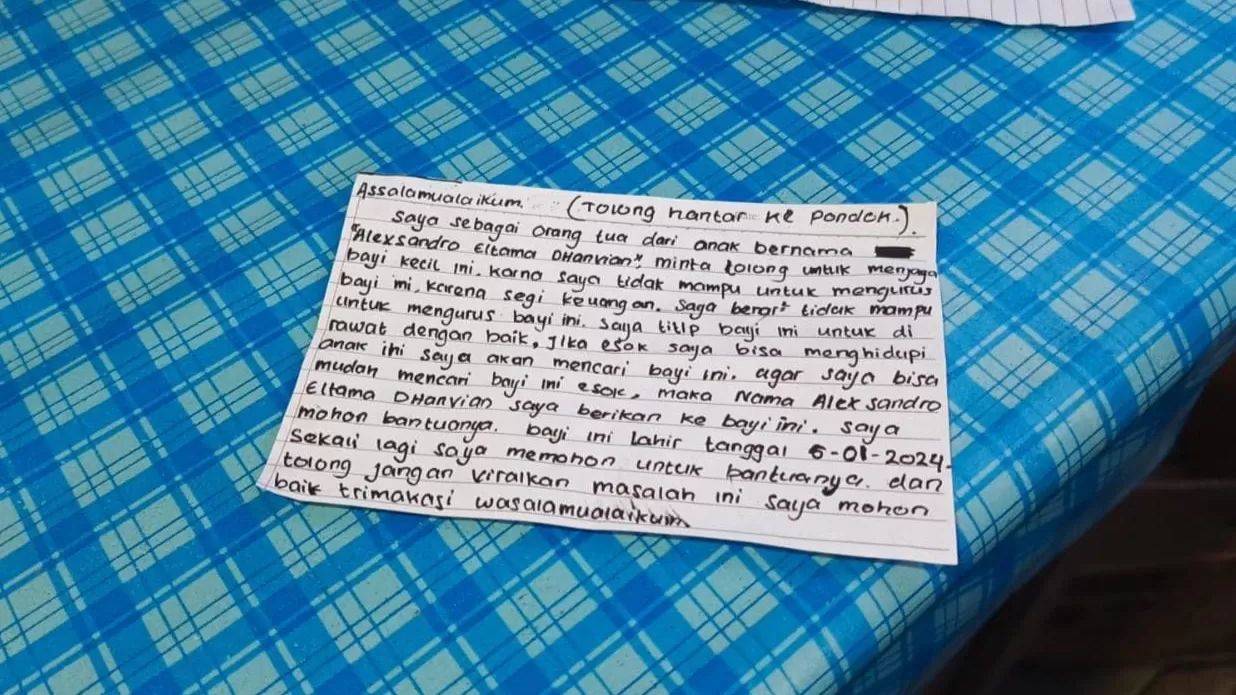 Assalamualaikum. (Tolong hantar ke pondok.).
Saya sebagai orang tua dari anak bernama
"Alexsandro Eltama DHanvian", minta tolong untuk menjaga
bayi kecil ini. karna saya tidak mampu untuk mengurus
bayi ini, karena segi keuangan. saya benar² tidak mampu
untuk mengurus bayi ini. saya titip bayi ini untuk di
rawat dengan baik, Jika esok saya bisa menghidupi
anak ini saya akan mencari bayi ini. agar saya bisa
mudah mencari bayi ini esok, maka Nama Alex sandro
Eltama DHanvian saya berikan ke bayi ini. saya
mohon bantuanya. bayi ini Lahir tanggal 6-01-2024.
Sekali lagi saya memohon untuk bantuanya. dan
tolong jangan viralkan masalah ini saya mohon
baik trimakasi wasalamualaikum